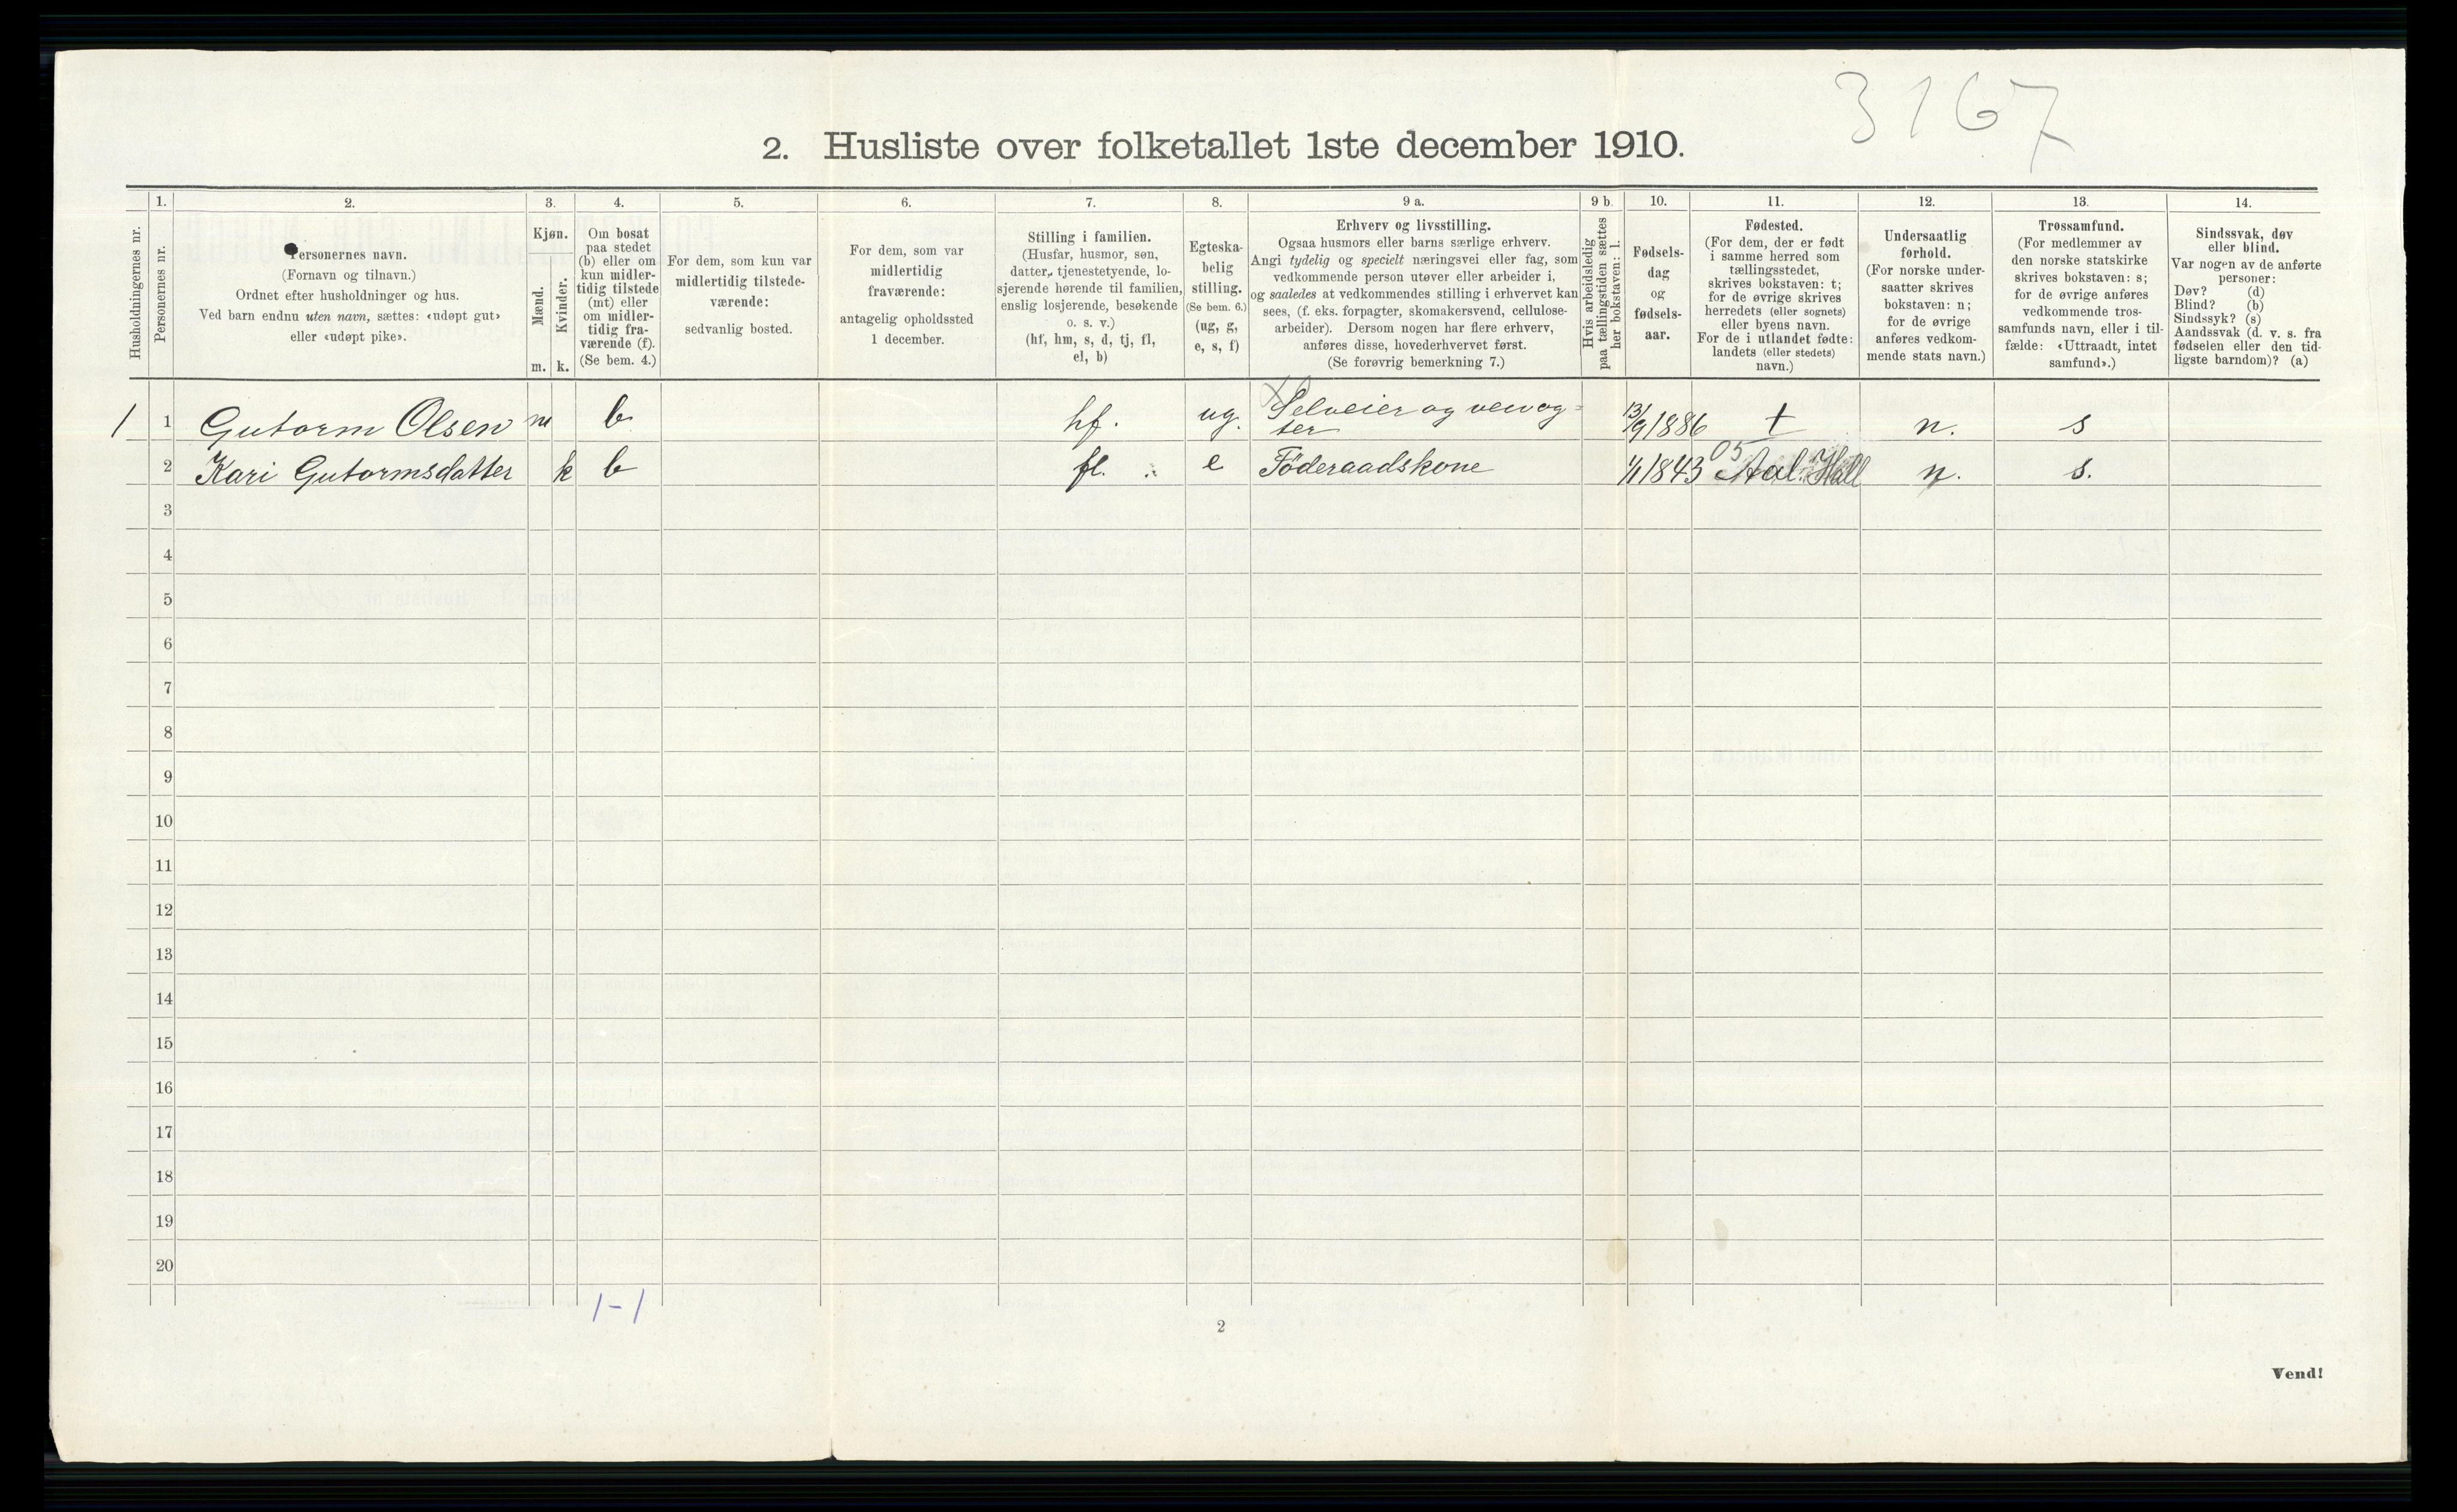 3167
2. Husliste over folketallet 1ste december 1910.
Husholdningernes nr.
1.
Personernes nr.
2.
Personernes navn.
(Fornavn og tilnavn.)
Ordnet efter husholdninger og hus.
Ved barn endnu uten navn, sættes: «udøpt gut»
eller «udøpt pike».
3.
Kjøn.
Mænd.
Kvinder.
m. k.
4.
Om bosat
paa stedet
(b) eller om
kun midler-
tidig tilstede
(mt) eller
om midler-
tidig fra-
værende (f).
(Se bem. 4.)
5.
For dem, som kun var
midlertidig tilstede-
værende:
sedvanlig bosted.
6.
For dem, som var
midlertidig
fraværende:
antagelig opholdssted
1 december.
7.
Stilling i familien.
(Husfar, husmor, søn,
datter, tjenestetyende, lo-
sjerende hørende til familien,
enslig losjerende, besøkende
o. s. v.)
(hf, hm, s, d, tj, fl,
el, b)
8.
Egteska-
belig
stilling.
(Se bem. 6.)
(ug, g,
e, s, f)
9 a.
Erhverv og livsstilling.
Ogsaa husmors eller barns særlige erhverv.
Angi tydelig og specielt næringsvei eller fag, som
vedkommende person utøver eller arbeider i,
og saaledes at vedkommendes stilling i erhvervet kan
sees, (f. eks. forpagter, skomakersvend, cellulose-
arbeider). Dersom nogen har flere erhverv,
anføres disse, hovederhvervet først.
(Se forøvrig bemerkning 7.)
9 b.
Hvis arbeidsledig
paa tællingstiden sættes
her bokstaven: l.
10.
Fødsels-
dag
og
fødsels-
aar.
11.
Fødested.
(For dem, der er født
i samme herred som
tællingsstedet,
skrives bokstaven: t;
for de øvrige skrives
herredets (eller sognets)
eller byens navn.
For de i utlandet fødte:
landets (eller stedets)
navn.)
12.
Undersaatlig
forhold.
(For norske under-
saatter skrives
bokstaven: n;
for de øvrige
anføres vedkom-
mende stats navn.)
13.
Trossamfund.
(For medlemmer av
den norske statskirke
skrives bokstaven: s;
for de øvrige anføres
vedkommende tros-
samfunds navn, eller i til-
fælde: «Uttraadt, intet
samfund».)
14.
Sindssvak, døv
eller blind.
Var nogen av de anførte
personer:
Døv? (d)
Blind? (b)
Sindssyk? (s)
Aandssvak (d. v. s. fra
fødselen eller den tid-
ligste barndom)? (a)
1 1 Gutorm Olsen m b hf. ug. Selveier og 13/9 1886 t n. s
2 Kari Gutormsdatter k b fl. e Föderaadskone 1/1 1843 05 Aal. Hall n. s.
3
4
5
6
7
8
9
10
11
12
13
14
15
16
17
18
19
20
1-1
2
Vend!